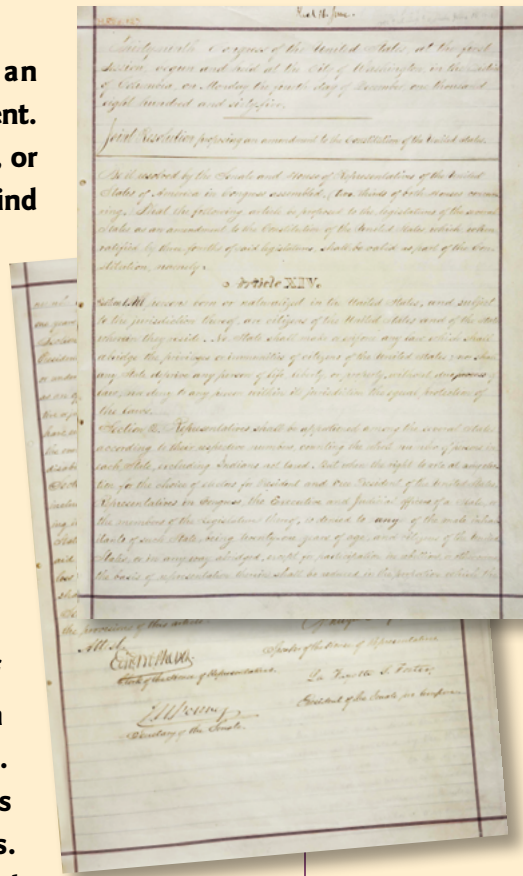 an
ent.
, or
ind
Thirty-ninth Congress of the United States, at the first
session, begun and held at the City of Washington, in the District
of Columbia, on Monday the fourth day of December, one thousand
eight hundred and sixty-five.
Joint Resolution proposing an amendment to the Constitution of the United States.
Be it resolved by the Senate and House of Representatives of the United
States of America in Congress assembled, (two thirds of both Houses concur-
ring,) That the following article be proposed to the legislatures of the several
States as an amendment to the Constitution of the United States, which, when
ratified by three fourths of said legislatures, shall be valid as part of the Con-
stitution, namely:
Article XIV.
Section 1. All persons born or naturalized in the United States, and subject
to the jurisdiction thereof, are citizens of the United States and of the State
wherein they reside. No State shall make or enforce any law which shall
abridge the privileges or immunities of citizens of the United States; nor shall
any State deprive any person of life, liberty, or property, without due process of
law; nor deny to any person within its jurisdiction the equal protection of
the laws.
Section 2. Representatives shall be apportioned among the several States
according to their respective numbers, counting the whole number of persons in
each State, excluding Indians not taxed. But when the right to vote at any elec-
tion for the choice of electors for President and Vice President of the United States,
Representatives in Congress, the Executive and Judicial officers of a State, or
the members of the Legislature thereof, is denied to any of the male inhabi-
tants of such State, being twenty-one years of age, and citizens of the United
States, or in any way abridged, except for participation in rebellion, or other crime,
the basis of representation therein shall be reduced in the proportion which the
the provisions of this article.
Attest
Speaker of the House of Representatives
Clerk of the House of Representatives
La Fayette S. Foster,
President of the Senate pro tempore
Secretary of the Senate
.
s
s.